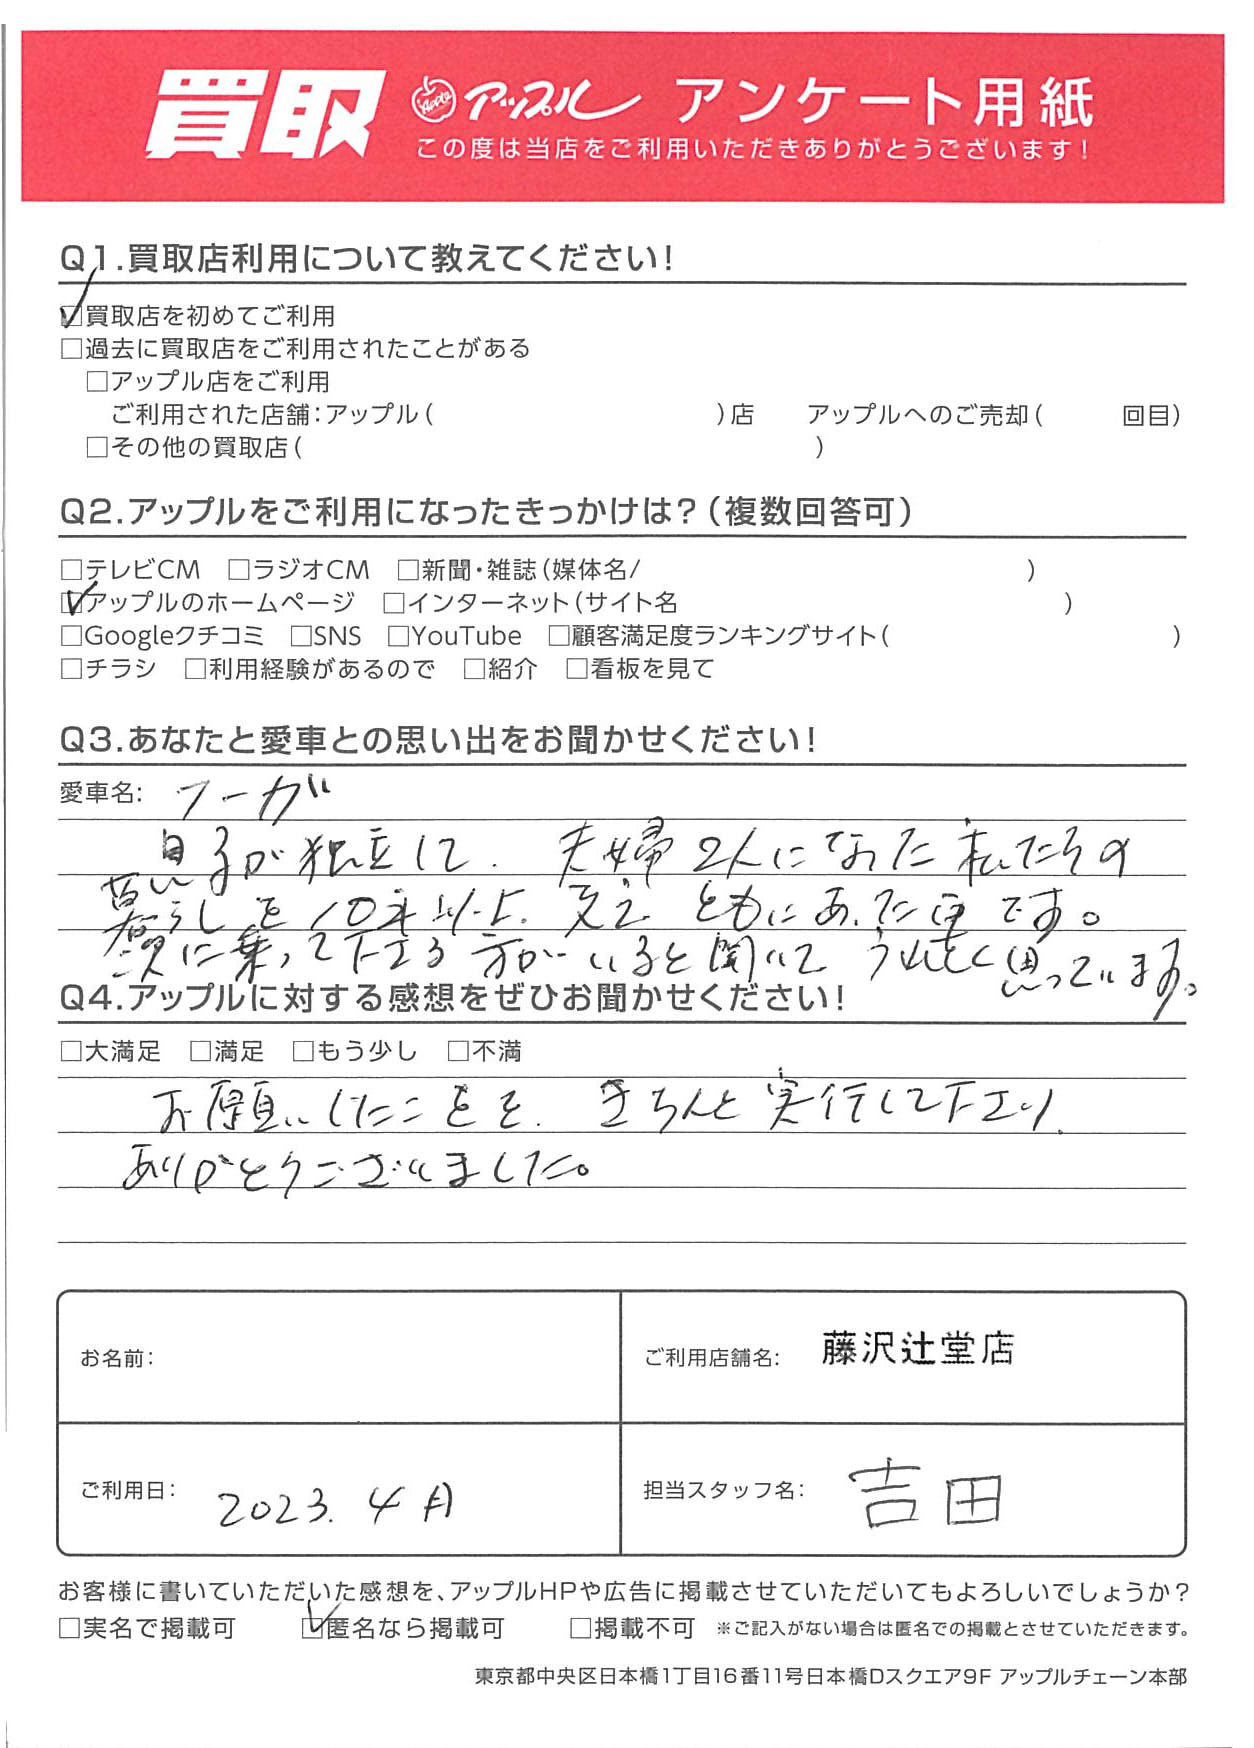 買取 Apple アップル アンケート用紙
この度は当店をご利用いただきありがとうございます！
Q1.買取店利用について教えてください！
☑買取店を初めてご利用
□過去に買取店をご利用されたことがある
□アップル店をご利用
ご利用された店舗：アップル（　　　）店　アップルへのご売却（　　　回目）
□その他の買取店（　　　）
Q2.アップルをご利用になったきっかけは？（複数回答可）
□テレビCM　□ラジオCM　□新聞・雑誌（媒体名/　　　）
☑アップルのホームページ　□インターネット（サイト名　　　）
□Googleクチコミ　□SNS　□YouTube　□顧客満足度ランキングサイト（　　　）
□チラシ　□利用経験があるので　□紹介　□看板を見て
Q3.あなたと愛車との思い出をお聞かせください！
愛車名： フーガ
息子が独立して、夫婦2人になった私たちの
暮らしを10年以上、支え、ともにあった車です。
次に乗って下さる方がいると聞いてうれしく思っています。
Q4.アップルに対する感想をぜひお聞かせください！
□大満足　□満足　□もう少し　□不満
お願いしたことを、きちんと実行して下さり、
ありがとうございました。
お名前：
ご利用店舗名： 藤沢辻堂店
ご利用日： 2023.4月
担当スタッフ名： 吉田
お客様に書いていただいた感想を、アップルHPや広告に掲載させていただいてもよろしいでしょうか？
□実名で掲載可　☑匿名なら掲載可　□掲載不可　※ご記入がない場合は匿名での掲載とさせていただきます。
東京都中央区日本橋1丁目16番11号日本橋Dスクエア9F アップルチェーン本部